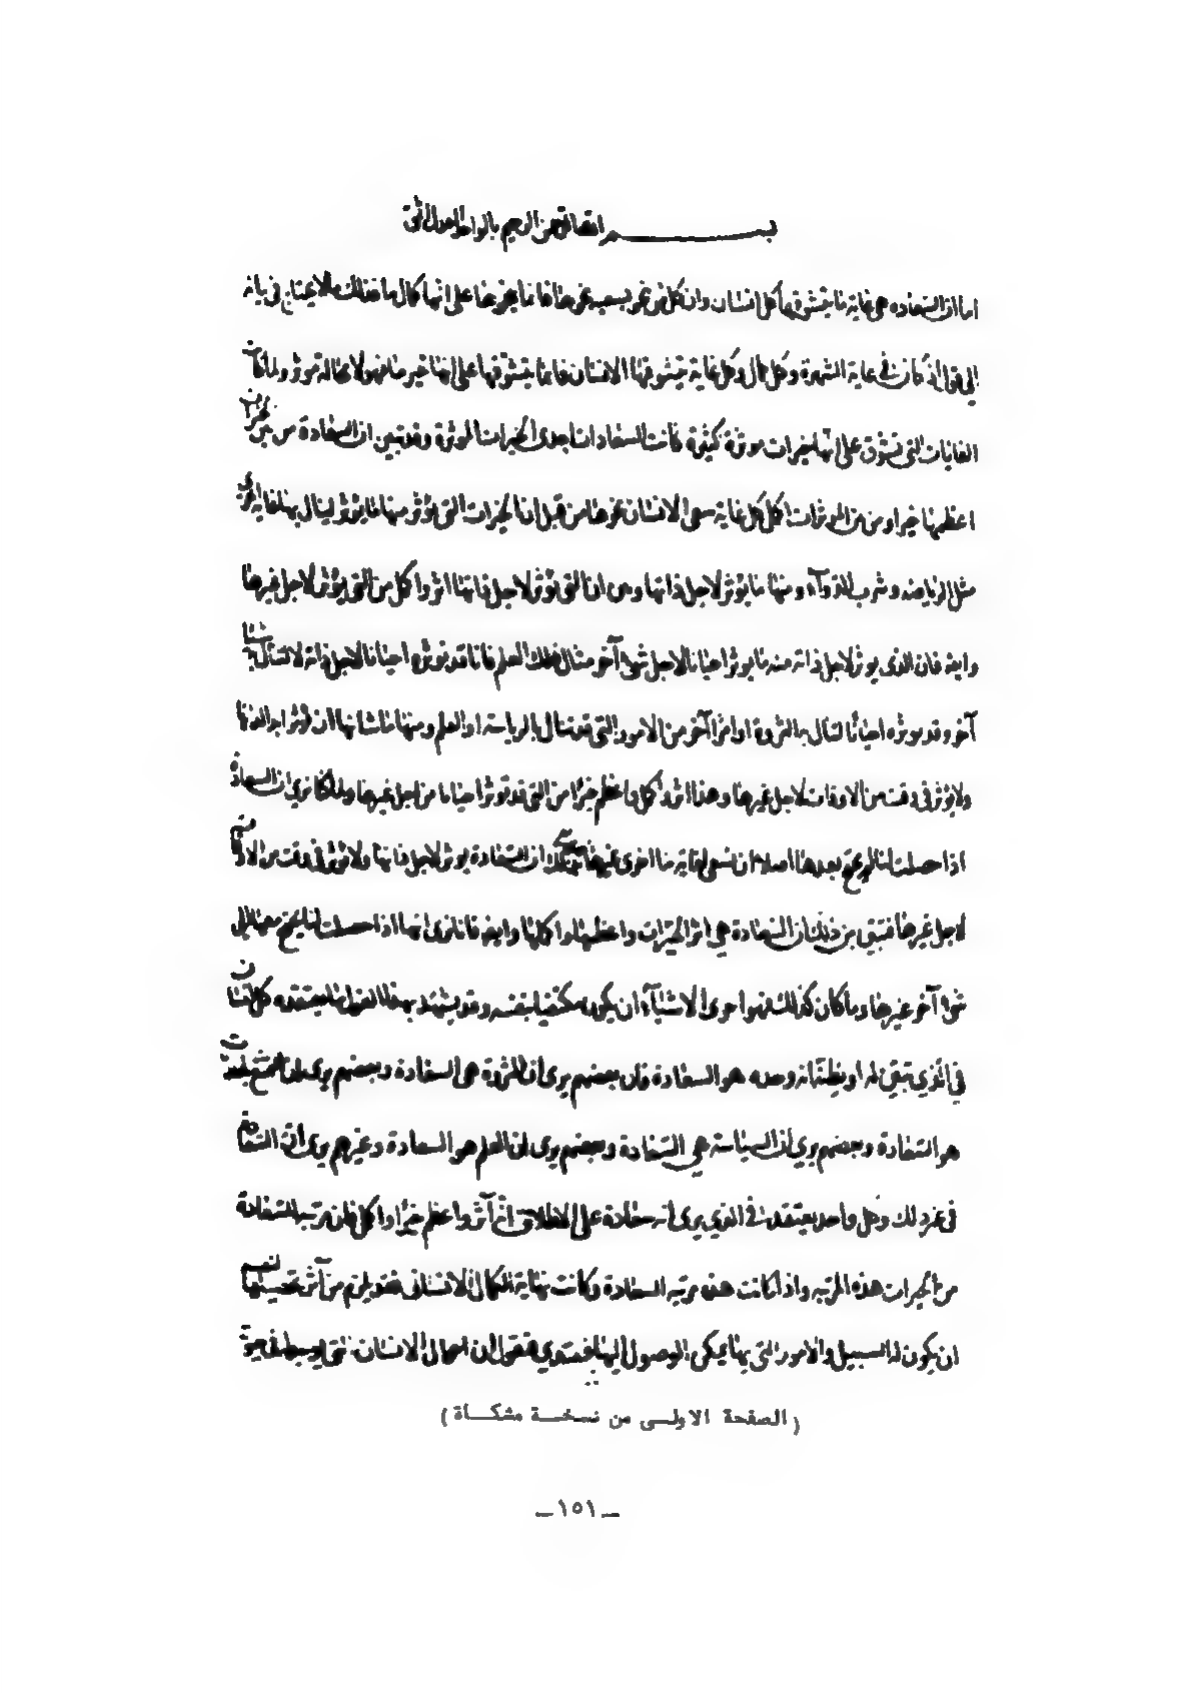 بسم الله الرحمن الرحيم بالواحد العدل اثق
اما ان السعاده هى غاية ما يتشوقها كل انسان وان كل من ينحو بسعيه نحوها فانما ينحوها على انها كمال ما فذلك ما لا يحتاج فى بيانه
الى قول اذ كان فى غاية الشهرة وكل كمال وكل غاية يتشوقها الانسان فانما يتشوقها على انها خير ما فهو لا محالة موثر ولما كانت
الغايات التى تتشوق على انها خيرات موثرة كثيرة كانت السعادة احدى الخيرات الموثرة وقد تبين ان السعادة من بين الخيرات
اعظمها خيرا ومن بين الموثرات اكمل كل غاية سعى الانسان نحوها من قبل ان الخيرات التى تؤثر منها ما يؤثر لينال بها غاية اخرى
مثل الرياضه وشرب الدوآء ومنها ما يؤثر لاجل ذاتها وبين ان التى تؤثر لاجل ذاتها اثر واكمل من التى يؤثر لاجل غيرها
وايضا فان الذى يوثر لاجل ذاته منه ما يوثر احيانا لاجل شئ آخر مثال ذلك العلم فانا قد نوثره احيانا لاجل ذاته لا لننال به شيئا
آخر وقد نوثره احيانا لننال به الثروة او امرا آخر من الامور التى قد تنال بالرياسة او العلم ومنها ما شانها ان تؤثر ابدا لذاتها
ولا يؤثر فى وقت من الاوقات لاجل غيرها وهذا اثر واكمل واعظم خيرا من التى قد توثر احيانا من اجل غيرها ولما كنا نرى ان السعادة
اذا حصلت لنا لم نحتج بعدها اصلا ان نسعى لغاية ما اخرى غيرها ظهر بذلك ان السعادة يوثر لاجل ذاتها ولا تؤثر فى وقت من الاوقات
لاجل غيرها فتبين من ذلك ان السعادة هى اثر الخيرات واعظمها واكملها وايضا فانا نرى انها اذا حصلت لنا لم نحتج معها الى
شئ آخر غيرها وما كان كذلك فهو احرى الاشيآء ان يكون مكتفيا بنفسه وقد يشهد بهذا القول ما يعتقده كل انسان
فى الذي تبين له او يظنه انه وحده هو السعادة فان بعضهم يرى ان الثروة هى السعادة وبعضهم يرى ان التمتع باللذات
هو السعادة وبعضهم يرى ان السياسة هى السعادة وبعضهم يرى ان العلم هو السعادة وغيرهم يرى ان السعادة
فى غير ذلك وكل واحد يعتقد فى الذي يرى انه سعادة على الاطلاق انه آثر واعظم خيرا واكمل فان مرتبه السعادة
من الخيرات هذه المرتبه واذا كانت هذه مرتبه السعادة وكانت نهاية الكمال الانسانى فقد يلزم من آثر تحصيلها لنفسه
ان يكون له السبيل والامور التى بها يمكن الوصول اليها فنبتدي فنقول ان احوال الانسان التى
(الصفحة الاولى من نسخة مشكاة)
ـ١٥١ـ